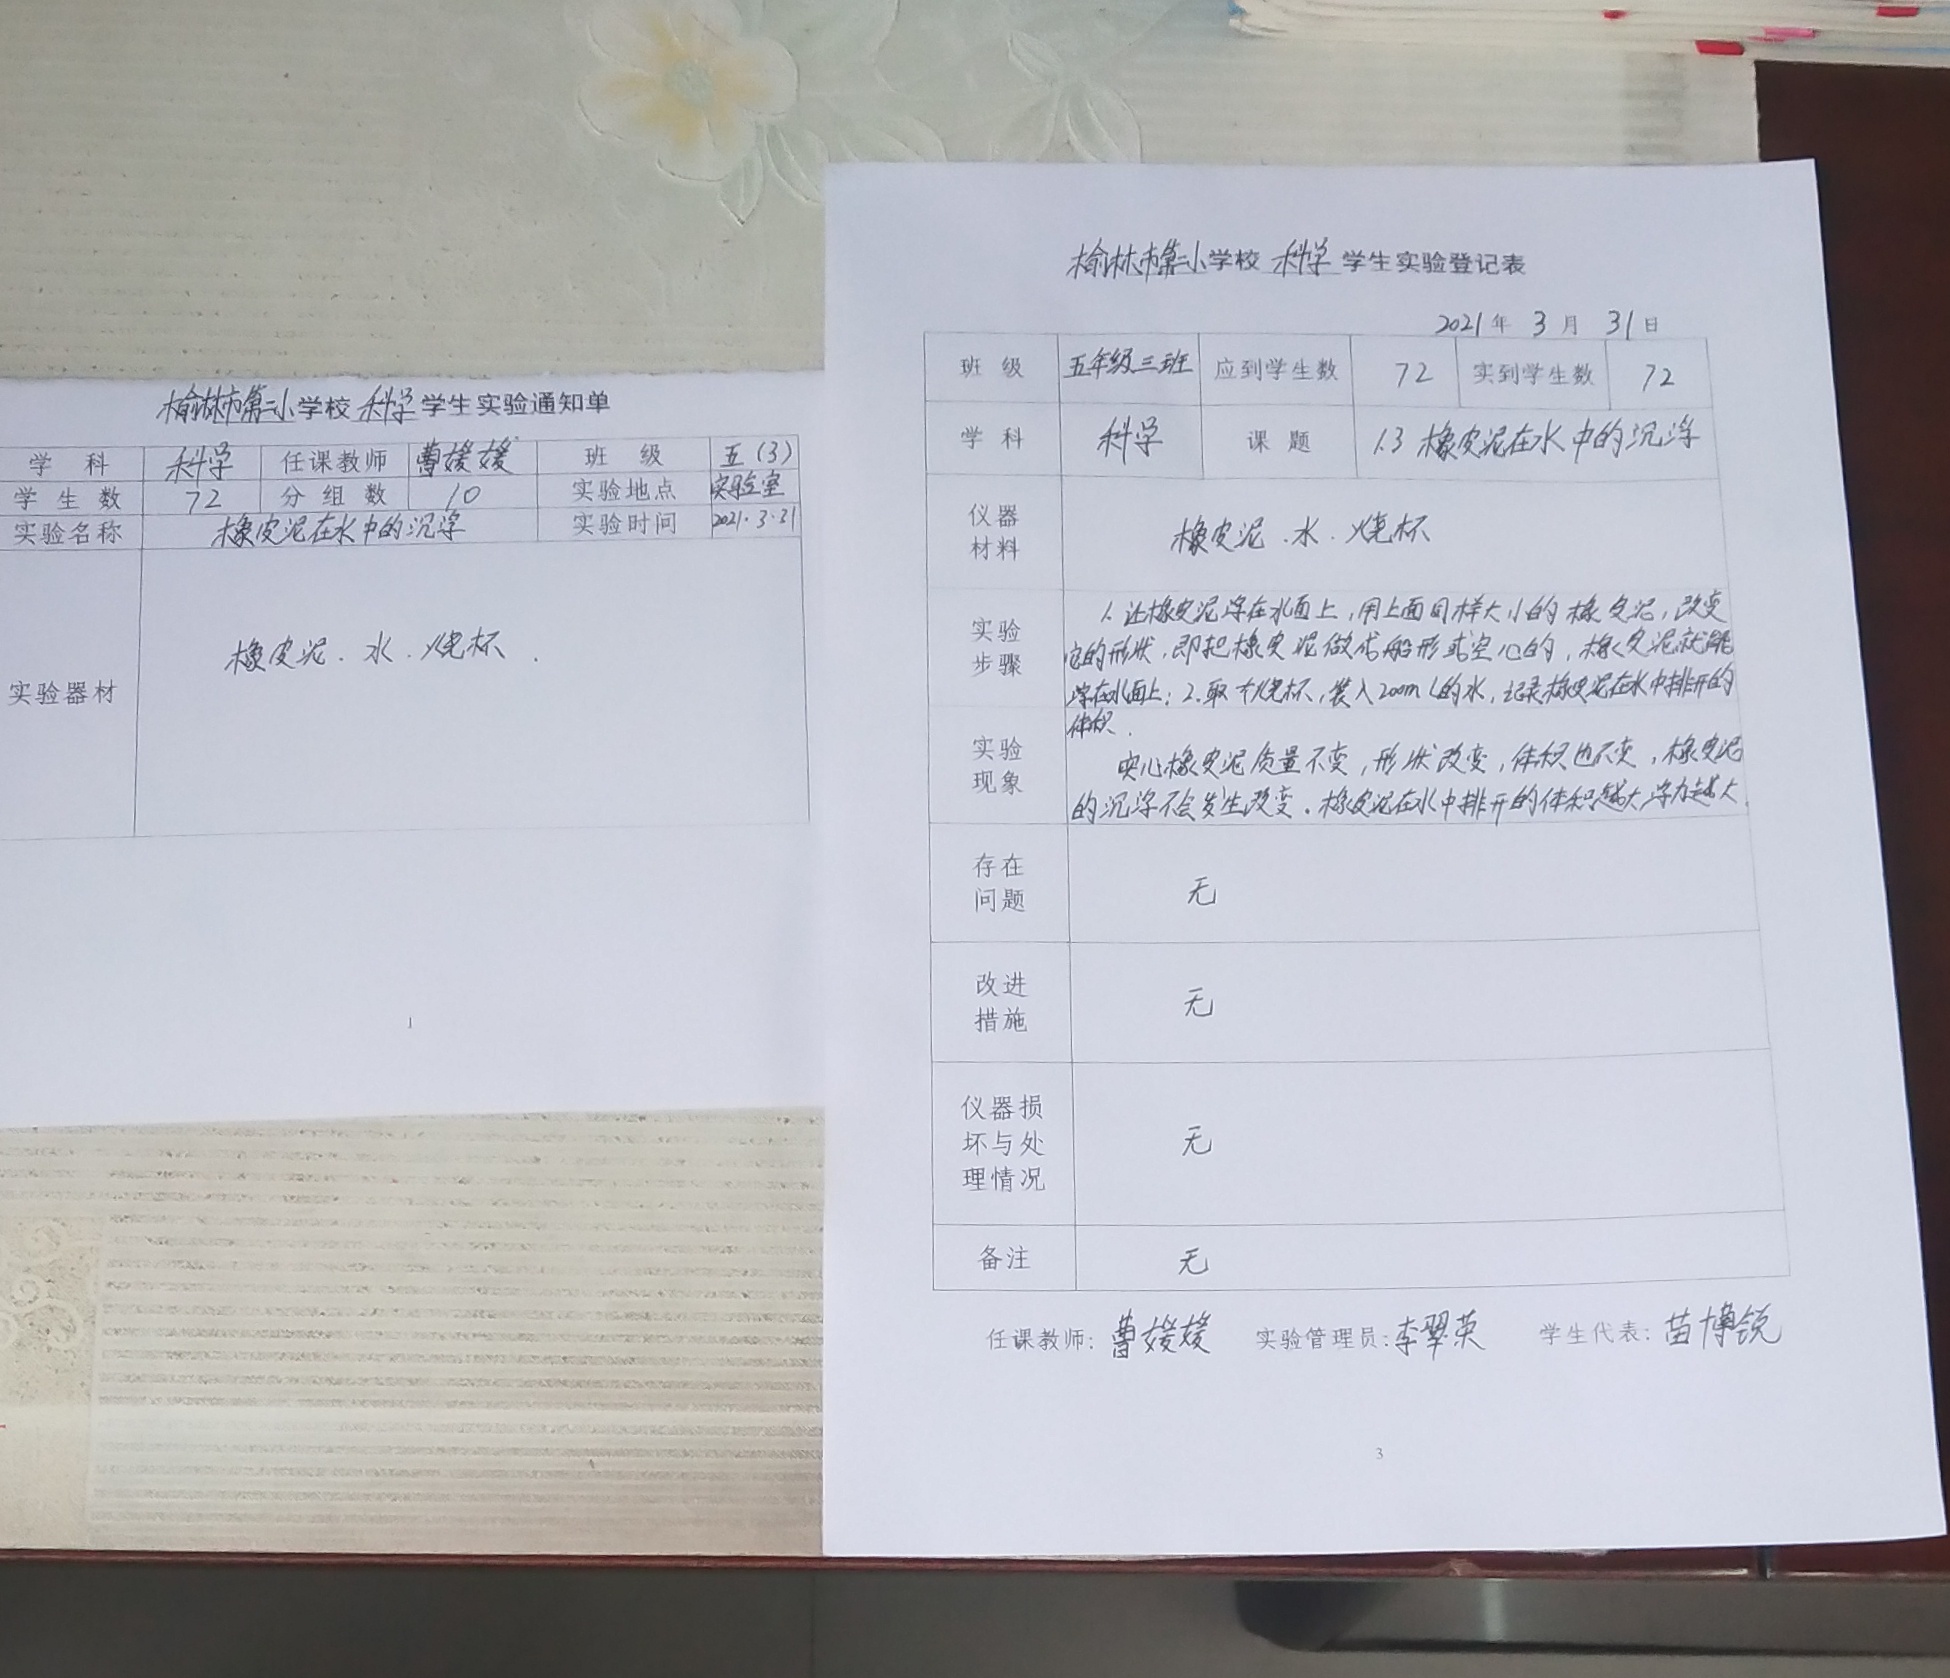 榆林市第二小学校 科学 学生实验通知单
学 科 科学 任课教师 曹媛媛 班 级 五(3)
学 生 数 72 分 组 数 10 实验地点 实验室
实验名称 橡皮泥在水中的沉浮 实验时间 2021.3.31
实验器材 橡皮泥.水.烧杯.
1
榆林市第二小学校 科学 学生实验登记表
2021年 3月 31日
班 级 五年级三班 应到学生数 72 实到学生数 72
学 科 科学 课 题 1.3 橡皮泥在水中的沉浮
仪器
材料
橡皮泥.水.烧杯
实验
步骤
1.让橡皮泥浮在水面上,用上面同样大小的橡皮泥,改变
它的形状,即把橡皮泥做成船形或空心的,橡皮泥就能
浮在水面上;2.取一烧杯,装入200ml的水,记录橡皮泥在水中排开的
体积.
实验
现象
实心橡皮泥质量不变,形状改变,体积也不变,橡皮泥
的沉浮不会发生改变.橡皮泥在水中排开的体积越大浮力越大.
存在
问题
无
改进
措施
无
仪器损
坏与处
理情况
无
备注 无
任课教师: 曹媛媛 实验管理员: 李翠英 学生代表: 苗博锐
3